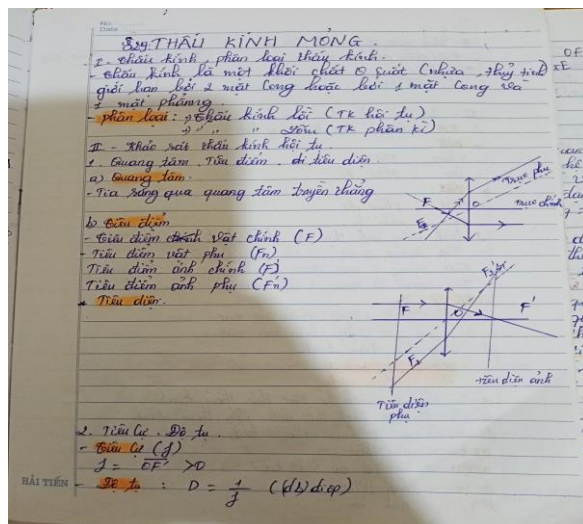 No:
Date
§29: THẤU KÍNH MỎNG.
I - Thấu kính, phân loại thấu kính.
- Thấu kính là một khối chất trong suốt (nhựa, thuỷ tinh)
giới hạn bởi 2 mặt cong hoặc bởi 1 mặt cong và
1 mặt phẳng.
- phân loại: + Thấu kính lồi (TK hội tụ)
+ " " lõm (TK phân kì)
II - Khảo sát thấu kính hội tụ.
1. Quang tâm. Tiêu điểm. tiêu diện.
a) Quang tâm.
- Tia sáng qua quang tâm truyền thẳng
Trục phụ
Trục chính
F
O
b) Tiêu điểm
- Tiêu điểm vật chính (F)
- Tiêu điểm vật phụ (Fn)
Tiêu điểm ảnh chính (F')
Tiêu điểm ảnh phụ (F'n)
* Tiêu diện.
F
O
F'
tiêu diện ảnh
Tiêu diện
phụ
2. Tiêu cự. Độ tụ
- Tiêu cự (f)
f = OF' > 0
- Độ tụ : D = 1/f (dp) điop)
HẢI TIẾN